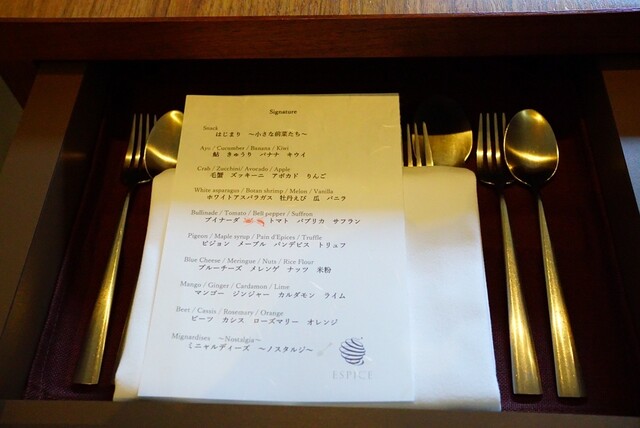 Signature
Snack
はじまり ～小さな前菜たち～
Ayu / Cucumber / Banana / Kiwi
鮎 きゅうり バナナ キウイ
Crab / Zucchini / Avocado / Apple
毛蟹 ズッキーニ アボカド りんご
White asparagus / Botan shrimp / Melon / Vanilla
ホワイトアスパラガス 牡丹えび 瓜 バニラ
Bullinade / Tomato / Bell pepper / Saffron
ブイナーダ トマト パプリカ サフラン
Pigeon / Maple syrup / Pain d'Epices / Truffle
ピジョン メープル パンデピス トリュフ
Blue Cheese / Meringue / Nuts / Rice Flour
ブルーチーズ メレンゲ ナッツ 米粉
Mango / Ginger / Cardamon / Lime
マンゴー ジンジャー カルダモン ライム
Beet / Cassis / Rosemary / Orange
ビーツ カシス ローズマリー オレンジ
Mignardises ～Nostalgia～
ミニャルディーズ ～ノスタルジ～
ESPICE